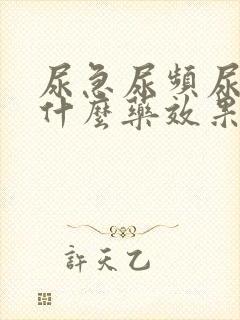 尿急尿頻尿
什麼藥效果
許天乙